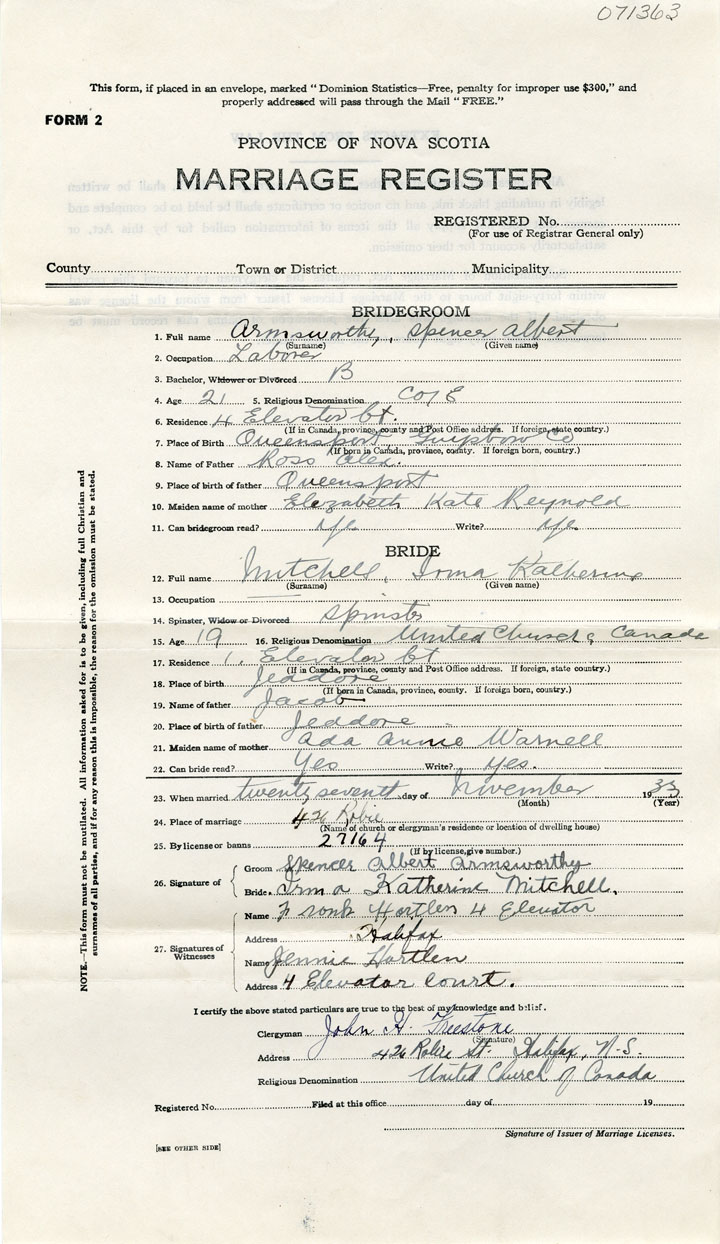 071363
This form, if placed in an envelope, marked "Dominion Statistics—Free, penalty for improper use $300," and
properly addressed will pass through the Mail "FREE."
FORM 2
PROVINCE OF NOVA SCOTIA
MARRIAGE REGISTER
REGISTERED No.
(For use of Registrar General only)
County Town or District Municipality
BRIDEGROOM
1. Full name Armsworthy, Spencer Albert
(Surname) (Given name)
2. Occupation Laborer
3. Bachelor, Widower or Divorced B
4. Age 21 5. Religious Denomination C of E
6. Residence 4 Elevator Ct.
(If in Canada, province, county and Post Office address. If foreign, state country.)
7. Place of Birth Queensport Guysboro Co
(If born in Canada, province, county. If foreign born, country.)
8. Name of Father Ross Alex.
9. Place of birth of father Queensport
10. Maiden name of mother Elizabeth Kate Reynold
11. Can bridegroom read? Yes Write? Yes
BRIDE
12. Full name Mitchell, Irma Katherine
(Surname) (Given name)
13. Occupation
14. Spinster, Widow or Divorced Spinster
15. Age 19 16. Religious Denomination United Church of Canada
17. Residence 1, Elevator Ct
(If in Canada, province, county and Post Office address. If foreign, state country.)
18. Place of birth Jeddore
(If born in Canada, province, county. If foreign born, country.)
19. Name of father Jacob
20. Place of birth of father Jeddore
21. Maiden name of mother Ada Annie Warnell
22. Can bride read? Yes Write? Yes.
23. When married twenty seventh day of November 1933
(Month) (Year)
24. Place of marriage 426 Robie
(Name of church or clergyman's residence or location of dwelling house)
25. By license or banns 27164
(If by license, give number.)
26. Signature of Groom Spencer Albert Armsworthy
Bride Irma Katherine Mitchell.
27. Signatures of Witnesses
Name Frank Hartlen 4 Elevator
Address Halifax
Name Jennie Hartlen
Address 4 Elevator Court.
I certify the above stated particulars are true to the best of my knowledge and belief.
Clergyman John H. Freestone
(Signature)
Address 426 Robie St. Halifax, N.S.
Religious Denomination United Church of Canada
Registered No. Filed at this office day of 19
Signature of Issuer of Marriage Licenses.
[SEE OTHER SIDE]
NOTE.—This form must not be mutilated. All information asked for is to be given, including full Christian and
surnames of all parties, and if for any reason this is impossible, the reason for the omission must be stated.